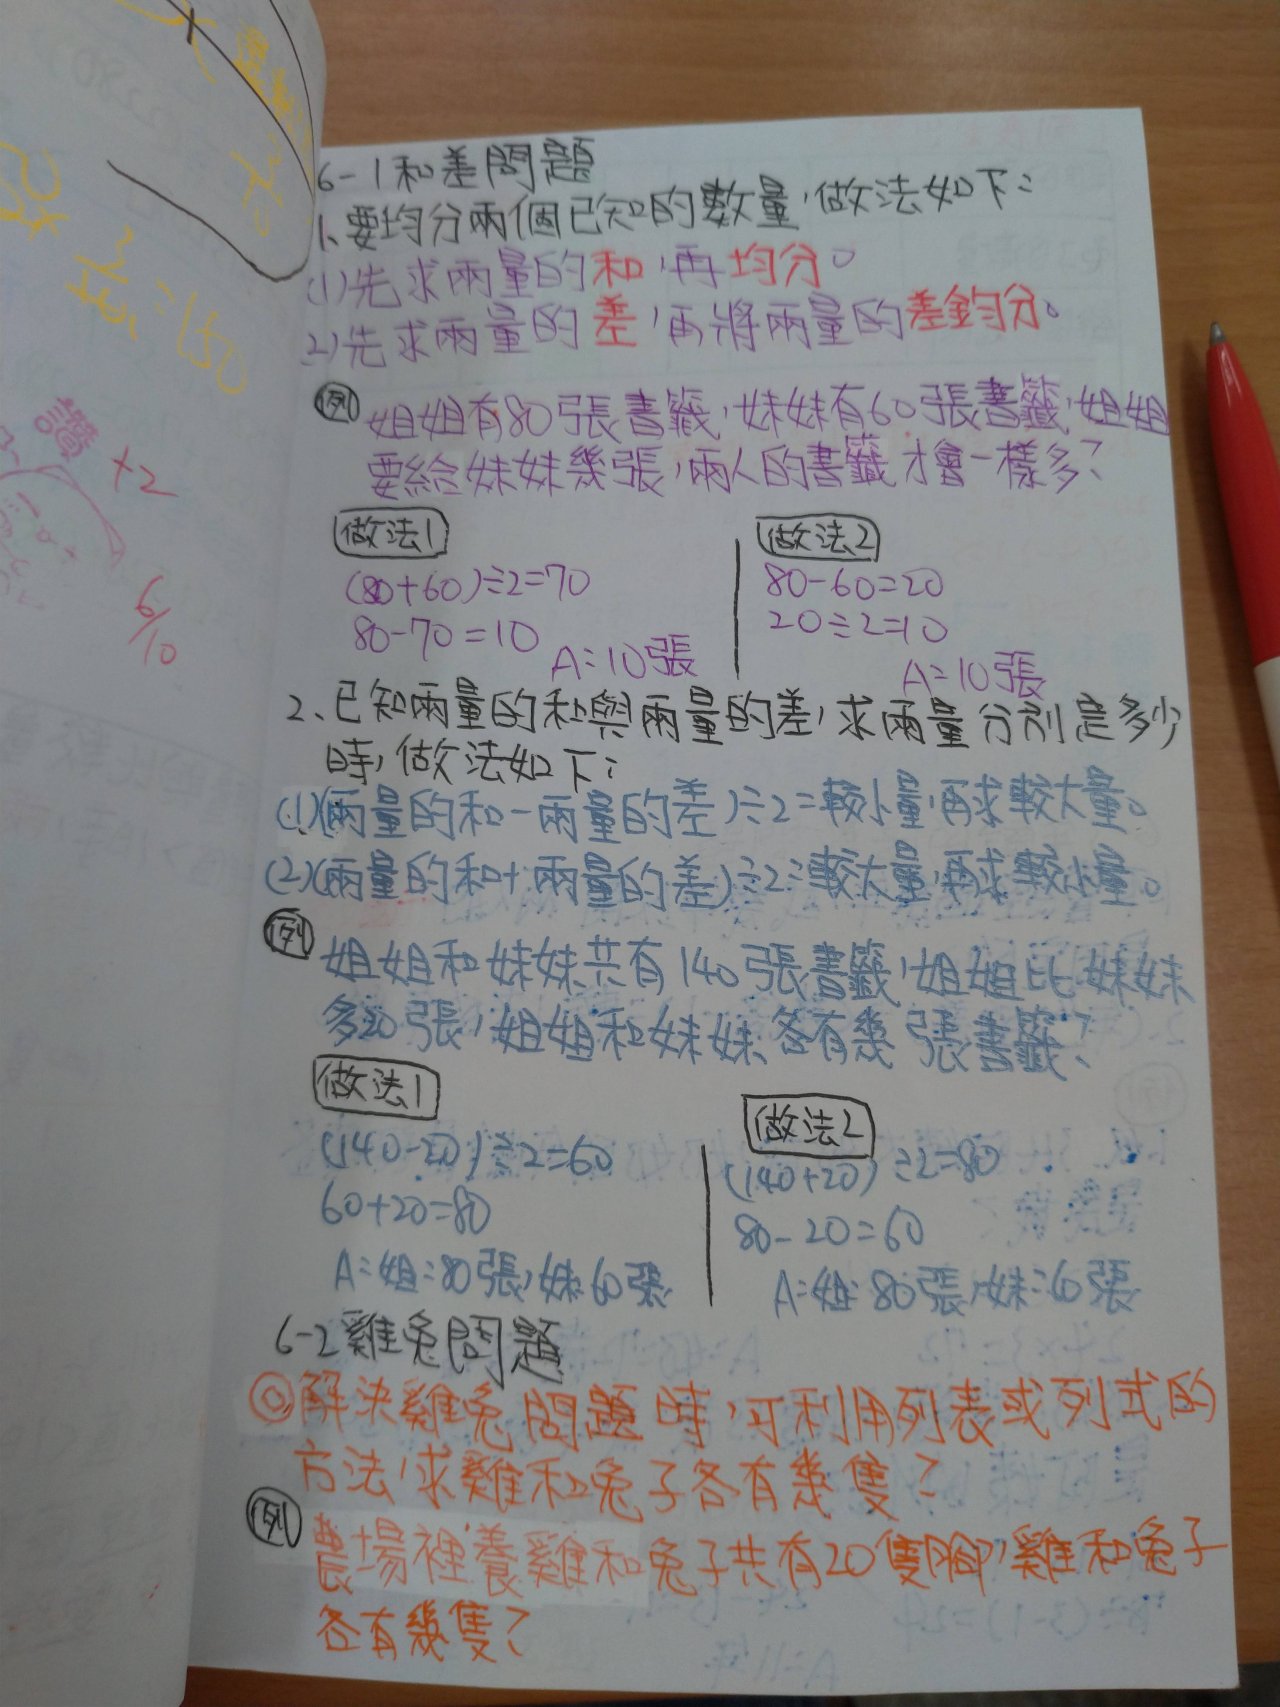 讚 +2
6/10
6-1和差問題
1、要均分兩個已知的數量,做法如下:
(1)先求兩量的和,再均分。
(2)先求兩量的差,再將兩量的差鈞分。
例 姐姐有80張書籤,妹妹有60張書籤,姐姐
要給妹妹幾張,兩人的書籤才會一樣多?
做法1
(80+60)÷2=70
80-70=10
A=10張
做法2
80-60=20
20÷2=10
A=10張
2、已知兩量的和與兩量的差,求兩量分別是多少
時,做法如下:
(1)(兩量的和-兩量的差)÷2=較小量,再求較大量。
(2)(兩量的和+兩量的差)÷2=較大量,再求較小量。
例 姐姐和妹妹共有140張書籤,姐姐比妹妹
多20張,姐姐和妹妹各有幾張書籤?
做法1
(140-20)÷2=60
60+20=80
A=姐:80張,妹:60張
做法2
(140+20)÷2=80
80-20=60
A=姐:80張,妹:60張
6-2雞兔問題
◎解決雞兔問題時,可利用列表或列式的
方法,求雞和兔子各有幾隻?
例 農場裡養雞和兔子共有20隻腳,雞和兔子
各有幾隻?